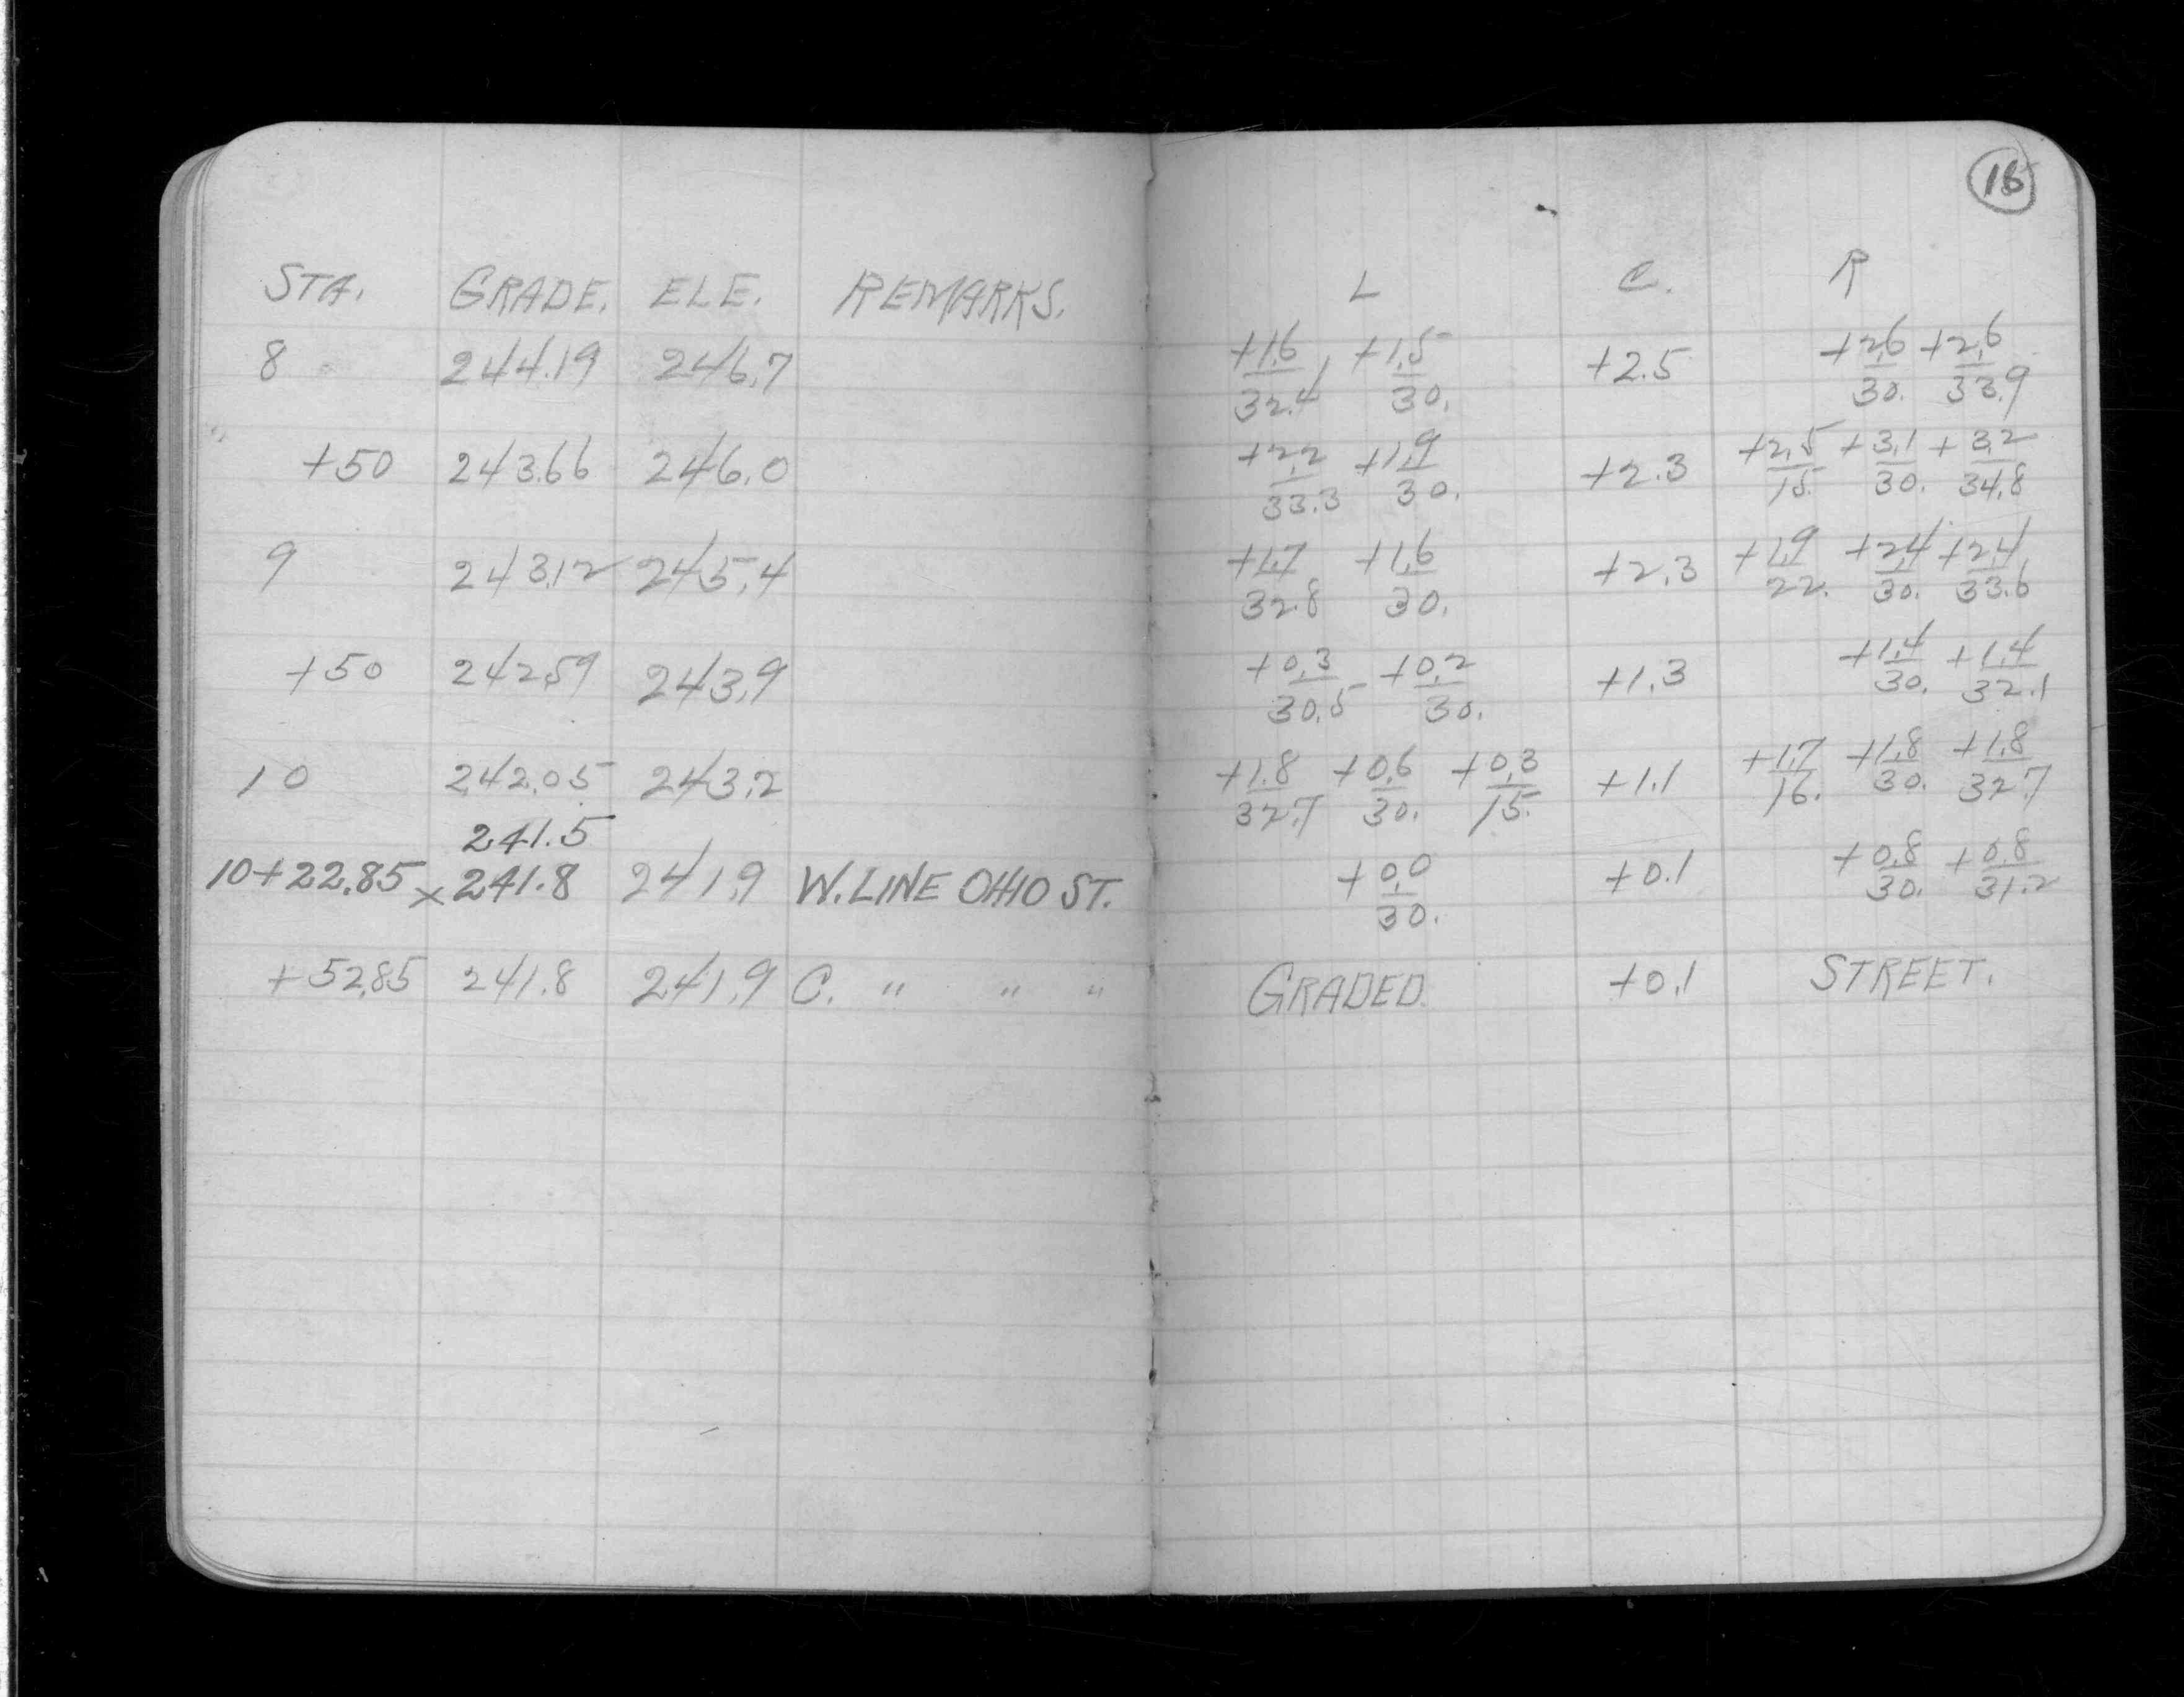 16
STA. GRADE. ELE. REMARKS. L C. R
8 244.19 246.7 +1.6/32.4 +1.5/30. +2.5 +2.6/30. +2.6/33.9
+50 243.66 246.0 +2.2/33.3 +1.9/30. +2.3 +2.5/15. +3.1/30. +3.2/34.8
9 243.12 245.4 +1.7/32.8 +1.6/30. +2.3 +1.9/22. +2.4/30. +2.4/33.6
+50 242.59 243.9 +0.3/30.5 +0.2/30. +1.3 +1.4/30. +1.4/32.1
10 242.05 243.2 +1.8/32.7 +0.6/30. +0.3/15. +1.1 +1.7/16. +1.8/30. +1.8/32.7
241.5
10+22.85 x 241.8 241.9 W. LINE OHIO ST. +0.0/30. +0.1 +0.8/30. +0.8/31.2
+52.85 241.8 241.9 C. " " " GRADED. +0.1 STREET.